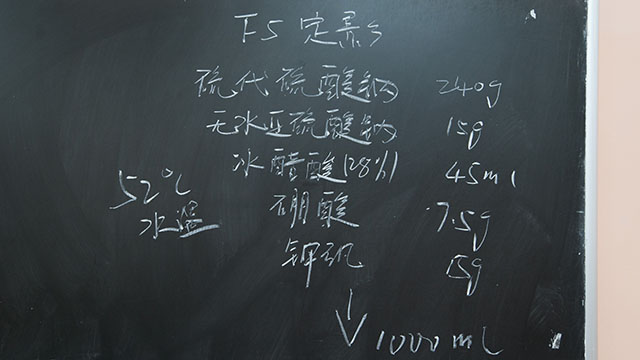 F5 定影
硫代硫酸钠 240g
无水亚硫酸钠 15g
冰醋酸(28%) 45ml
硼酸 7.5g
钾矾 15g
52℃
水温
↓ 1000ml